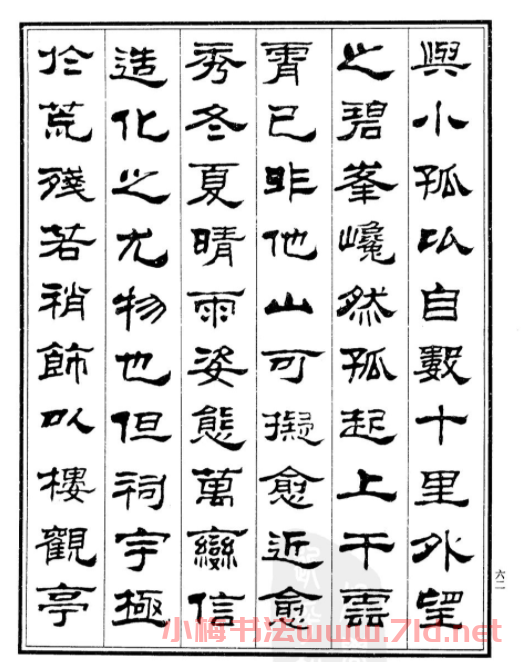 與小孤山自數十里外望
之碧峯巉然孤起上干雲
霄已非他山可擬愈近愈
秀冬夏晴雨姿態萬變信
造化之尤物也但祠宇極
於荒殘若稍飾以樓觀亭
六二
小梅书法www.7ld.net